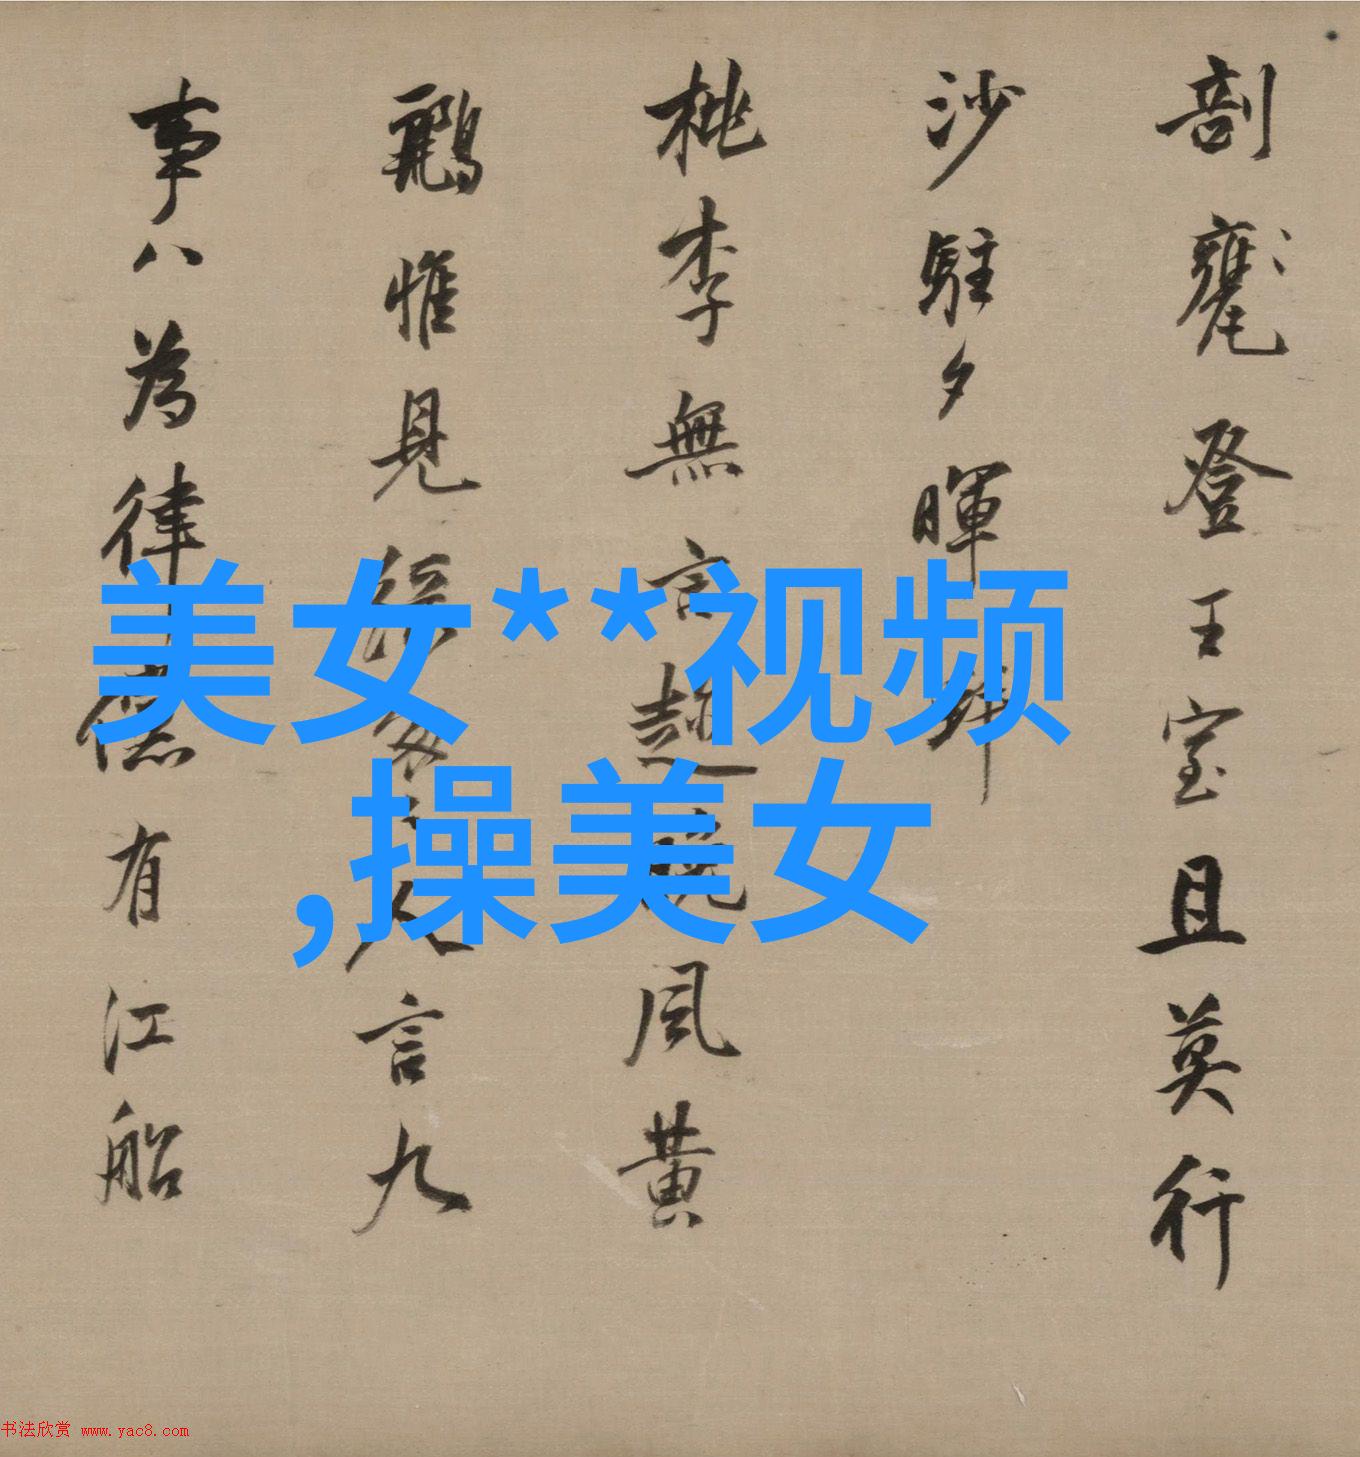 剖甕登王室且莫行
沙駐夕暉
桃李無言風黃
鸝惟見言九
事八為律有江船
美女**视频
,操美女
书法欣赏 www.yac8.com